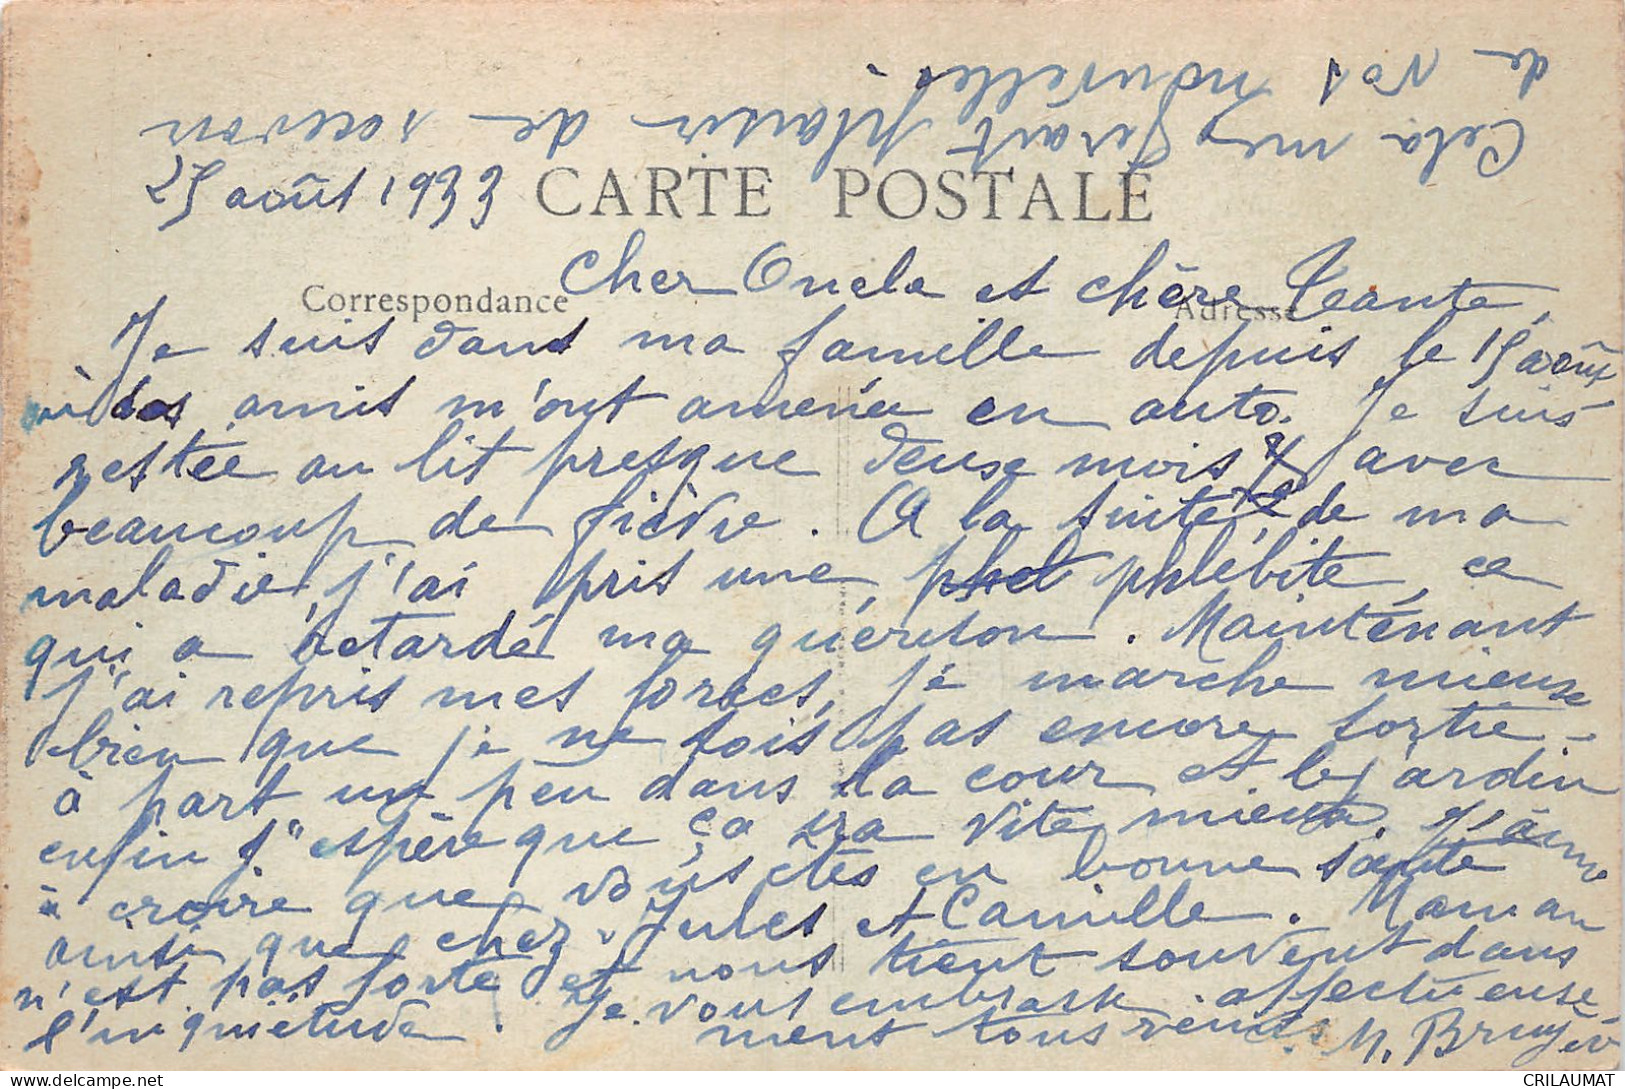 25 août 1933
CARTE POSTALE
Correspondance
Adresse
Cher Oncle et chère Tante,
Je suis dans ma famille depuis le 15 août
où des amis m'ont amenée en auto. Je suis
restée au lit presque deux mois avec
beaucoup de fièvre. A la suite de ma
maladie, j'ai pris une phlébite, ce
qui a retardé ma guérison. Maintenant
j'ai repris mes forces, je marche mieux
bien que je ne sois pas encore sortie
à part un peu dans la cour et le jardin
enfin j'espère que ça ira vite mieux. J'aime
à croire que vous êtes en bonne santé
ainsi que chez Jules et Camille. Maman
n'est pas forte et nous tient souvent dans
l'inquiétude. Je vous embrasse affectueuse
ment tous
M. Bruyé
Cela me ferait plaisir de recevoir
de vos nouvelles.
CRILAUMAT